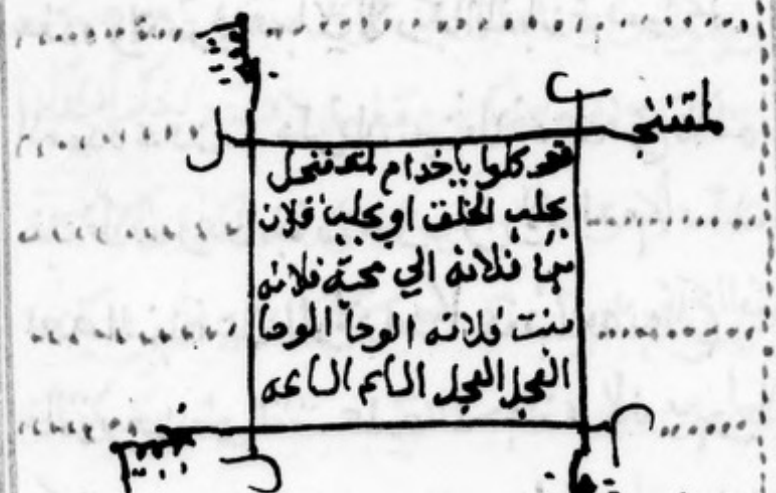 لمقفنجل
توكلوا ياخدام لمقفنجل
بجلب الخلق او بجلب فلان
بن فلانه الي محبة فلانه
بنت فلانه الوحا الوحا
العجل العجل الساعه الساعه